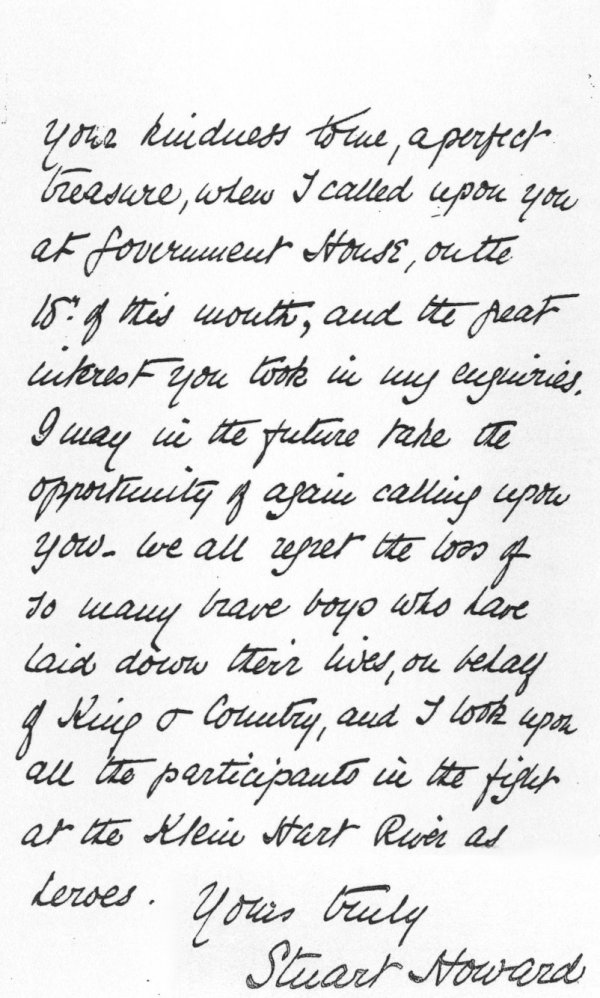 your kindness to me, a perfect
treasure, when I called upon you
at Government House, on the
15th of this month, and the great
interest you took in my enquiries.
I may in the future take the
opportunity of again calling upon
you - We all regret the loss of
so many brave boys who have
laid down their lives, on behalf
of King & Country, and I look upon
all the participants in the fight
at the Klein Hart River as
heroes.
Yours truly
Stuart Howard